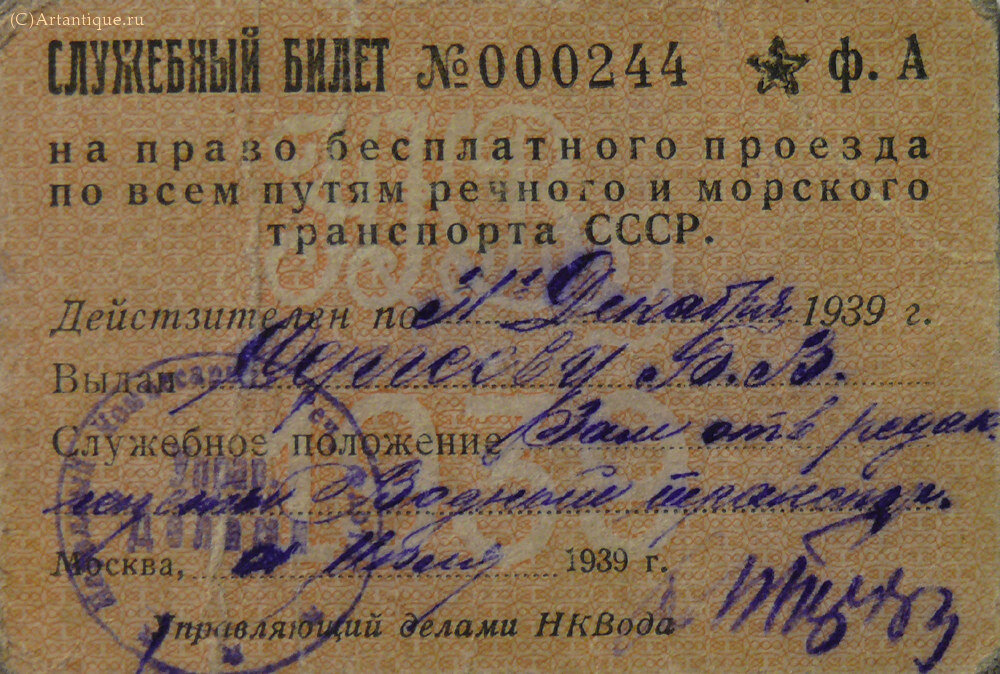 (C)Artantique.ru
СЛУЖЕБНЫЙ БИЛЕТ №000244 ф. А
на право бесплатного проезда
по всем путям речного и морского
транспорта СССР.
Действителен по 31 Декабря 1939 г.
Выдан Сергееву В.В.
Служебное положение Зам отв редак.
Водный трансп.
Москва, Июня 1939 г.
Управляющий делами НКВода
Управ.
Делами